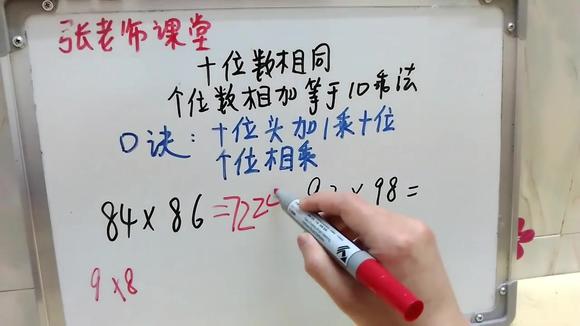 张老师课堂
十位数相同
个位数相加等于10乘法
口诀：十位头加1乘十位
个位相乘
84×86=722
×98=
9×8